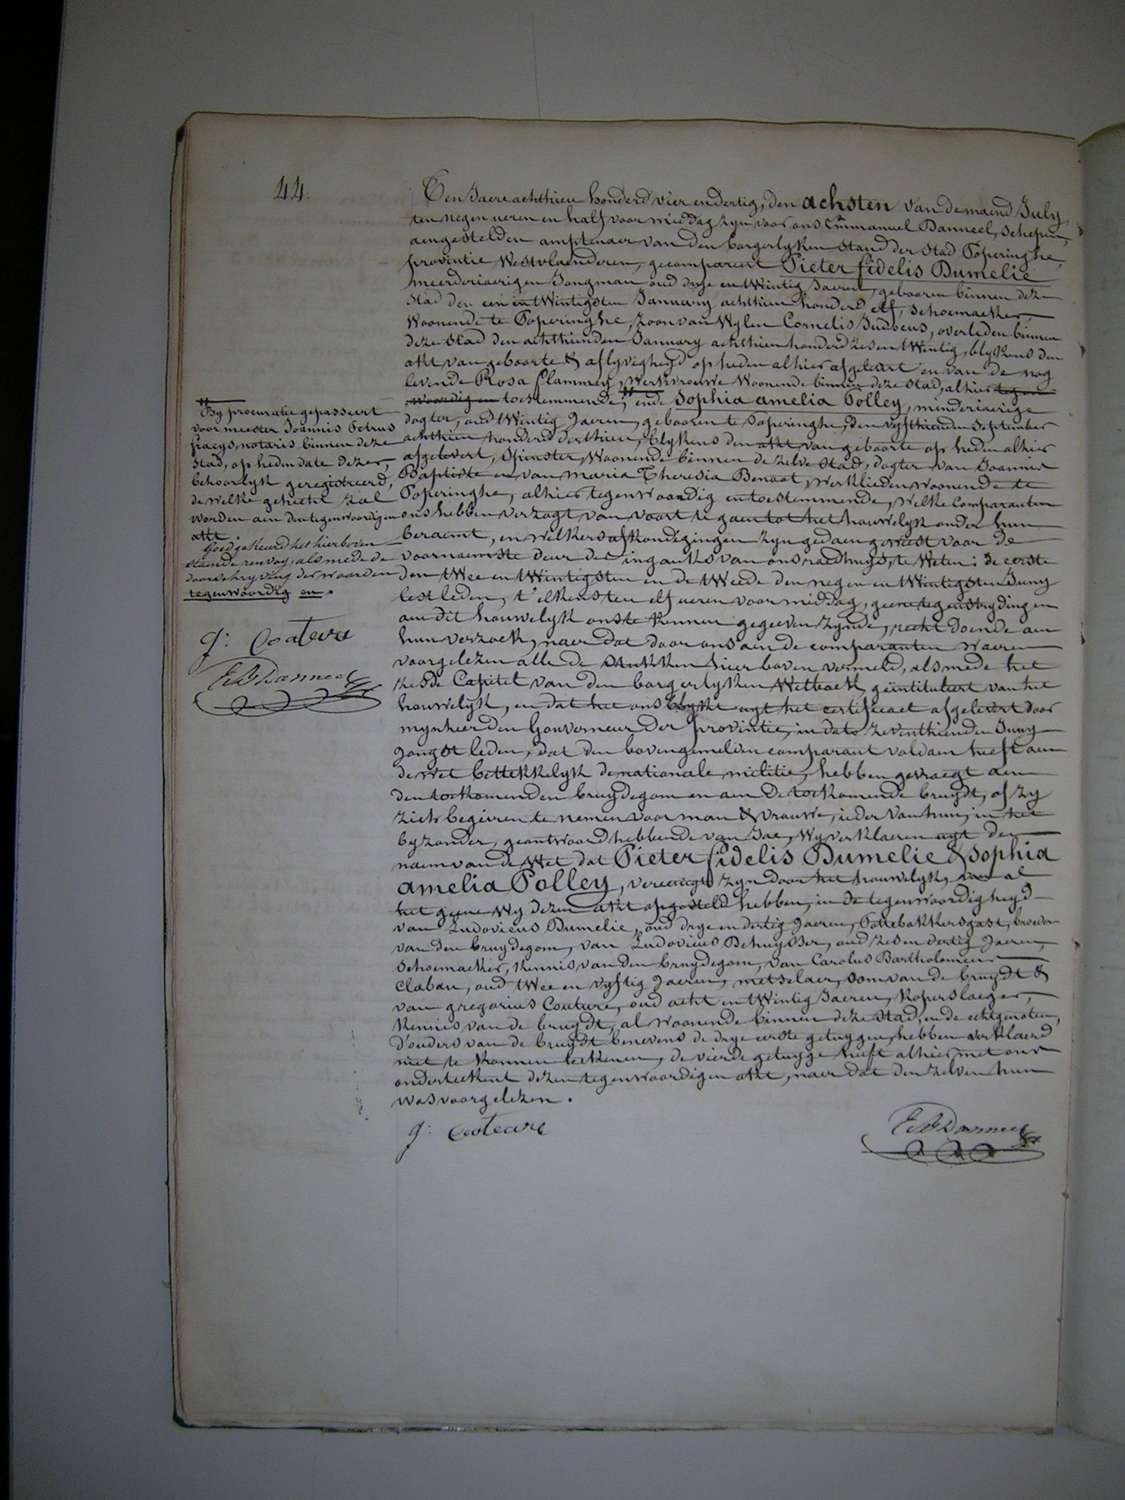 44.
Den Jaere achthien honderd vier en dertig, den achsten van de maend July
ten negen ueren en half voor middag zyn voor ons Emmanuel Banneel, schepen,
aengestelden amptenaer van den borgerlyken stand der stad Poperinghe,
provintie Westvlaenderen, gecompareert Pieter fidelis Dumelie
meerderjaerigen Jongman oud drye en twintig Jaeren, gebooren binnen deze
stad den een en twintigsten January achthien honderd elf, schoemaeker,
Woonende te Poperinghe, zoon van Wylen Cornelis Judocus, overleden binnen
deze stad den achthienden January achthien honderd zes en twintig, blykens den
akt van geboorte & aflyvigheyd op heden alhier afgeleart en van de nog
levende Rosa Flammey, Werkvrouwe Woonende binnen deze stad, alhier tegen-
woordig en toestemmende, ende Sophia amelia Polley, minderjaerige
dogter, oud twintig Jaeren, gebooren te Poperinghe, den vyfthienden September
achthien honderd derthien, blykens den akt van geboorte op heden alhier
afgelevert, spinster, Woonende binnen de zelve stad, dogter van Joannes
Baptiste en van Maria Theresia Benoot, Werklieden Woonende te
Poperinghe, alhier tegenwoordig en toestemmende, welke comparanten
ons hebben verzogt van voort te gaen tot het houwelyk onder hun
beraemt, en welkers afkondigingen zyn gedaen geweest voor de
voornaemste deur des ingangs van ons raedhuys, te weten: de eerste
den twee en twintigsten en de tweede den negen en twintigsten Juny
lestleden, t'elkensten elf ueren voor middag, geene tegenstryding en
aen dit houwelyk ons te kennen gegeeven zynde, recht doende aen
hun verzoek, naer dat door ons aen de comparanten waeren
voorgelezen alle de stukken hier boven vermeld, als mede het
zesde Capitel van den borgerlyken Wetboek geïntituleert van het
houwelyk, en dat het ons blykt uyt het certificaet afgelevert door
mynheer den Gouverneur der provintie, in dato zeventhienden Juny
jongst leden, dat den bovengemelden comparant voldaen heeft aen
de wet bettrekkelyk de nationale militie, hebben gevraegt aen
den toekomenden bruydegom en aen de toekomende bruydt, of zy
zich begeiren te nemen voor man & vrouwe, ieder van hun, in het
byzonder, geantwoord hebbende van Jae, Wy verklaeren uyt den
naem van de Wet dat Pieter fidelis Dumelie & Sophia
amelia Polley, vereenigt zyn door het houwelyk, van al
het geene Wy dezen akt opgesteld hebben, in de tegenwoordigheyd
van Ludovicus Dumelie, oud drye en dertig Jaeren, Pottebakkersgast, broeder
van den bruydegom, van Ludovicus Dehuysser, oud zes en dertig Jaeren,
Schoemaeker, kennis van den bruydegom, van Carolus Bartholomeus
Clabau, oud twee en vyftig Jaeren, metselaer, oom van de bruydt &
van gregorius Couture, oud acht en twintig Jaeren, Koperslaeger,
Kennis van de bruydt, al Woonende binnen deze Stad, ende echtgenoten,
d'ouders van de bruydt benevens de drye eerste getuygen, hebben verklaerd
niet te konnen teekenen, de vierde getuyge heeft alhier met ons
onderteekent dezen tegenwoordigen akt, naer dat den zelven hun
was voorgelezen.
By procuratie gepasseert
voor meester Joannis Petrus
notaris binnen deze
Stad, op heden date dezer,
behoorlyk geregistreerd,
de welke gehecht zal
worden aen den tegenwoordigen
akt.
Goedgekeurd het hierboven
staende renvoy, als mede de
doorschryving der woorden
tegenwoordig en.
g: Couteure
E B Banneel
g: Couteure
E B Banneel